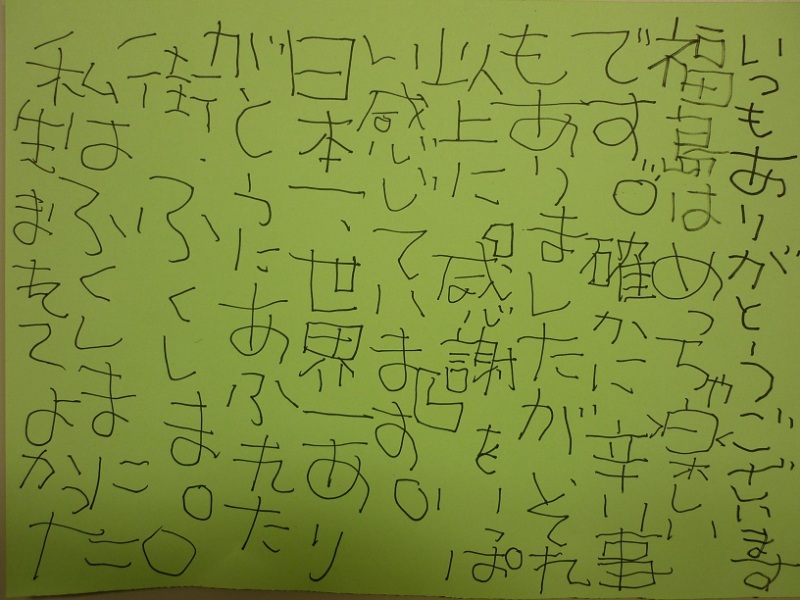 いつもありがとうございます
福島はめっちゃ楽しい
です。確かに辛い事
もありましたがそれ
以上に感謝をいっぱ
い感じています。
日本一、世界一あり
がとうにあふれた
街ふくしま。
私はふくしまに
生まれてよかった。